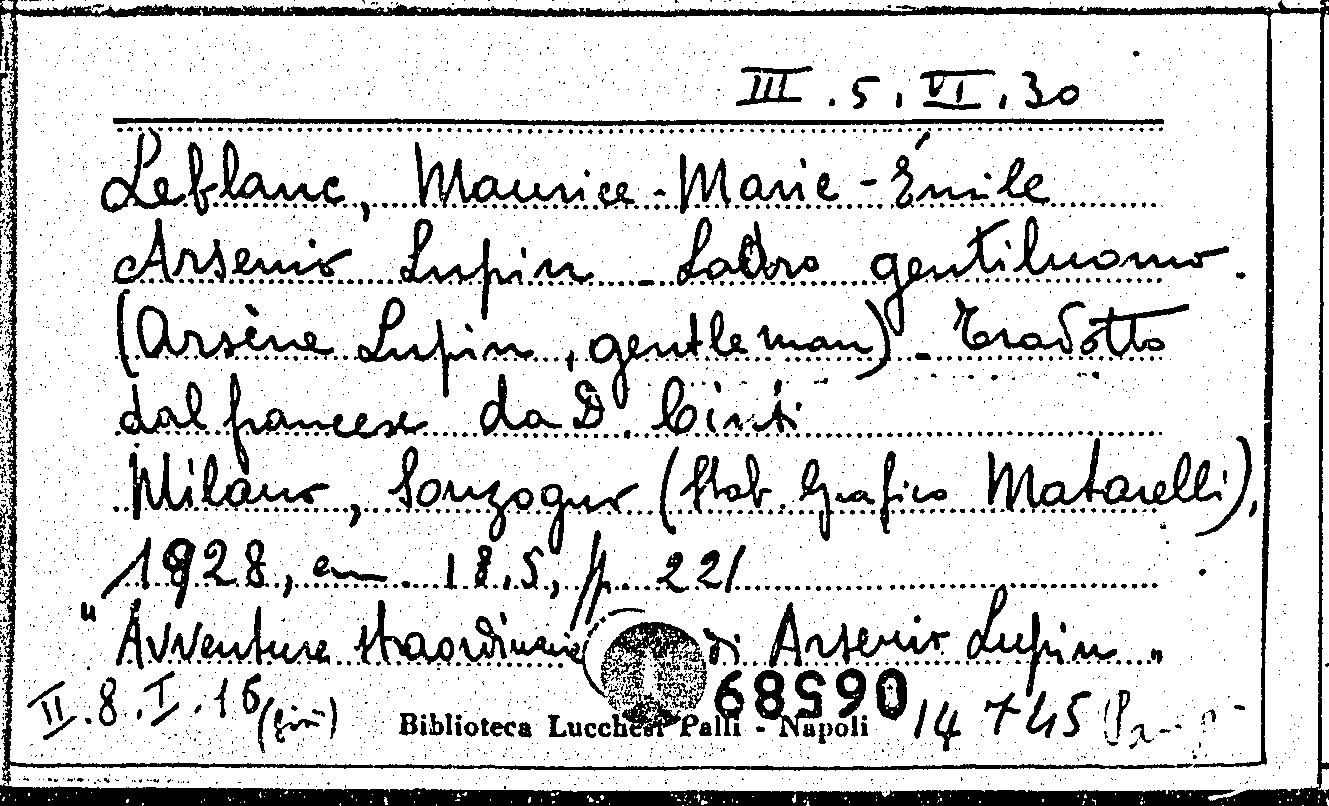 III.5.VI.30
Leblanc, Maurice-Marie-Émile
Arsenio Lupin - Ladro gentiluomo.
(Arsène Lupin, gentleman) - Tradotto
dal francese da D. Cinti
Milano, Sonzogno (Stab. Grafico Matarelli),
1928, cm. 18,5, pp. 221
"Avventure straordinarie di Arsenio Lupin"
II.8.I.16
068589
Biblioteca Lucchesi Palli - Napoli